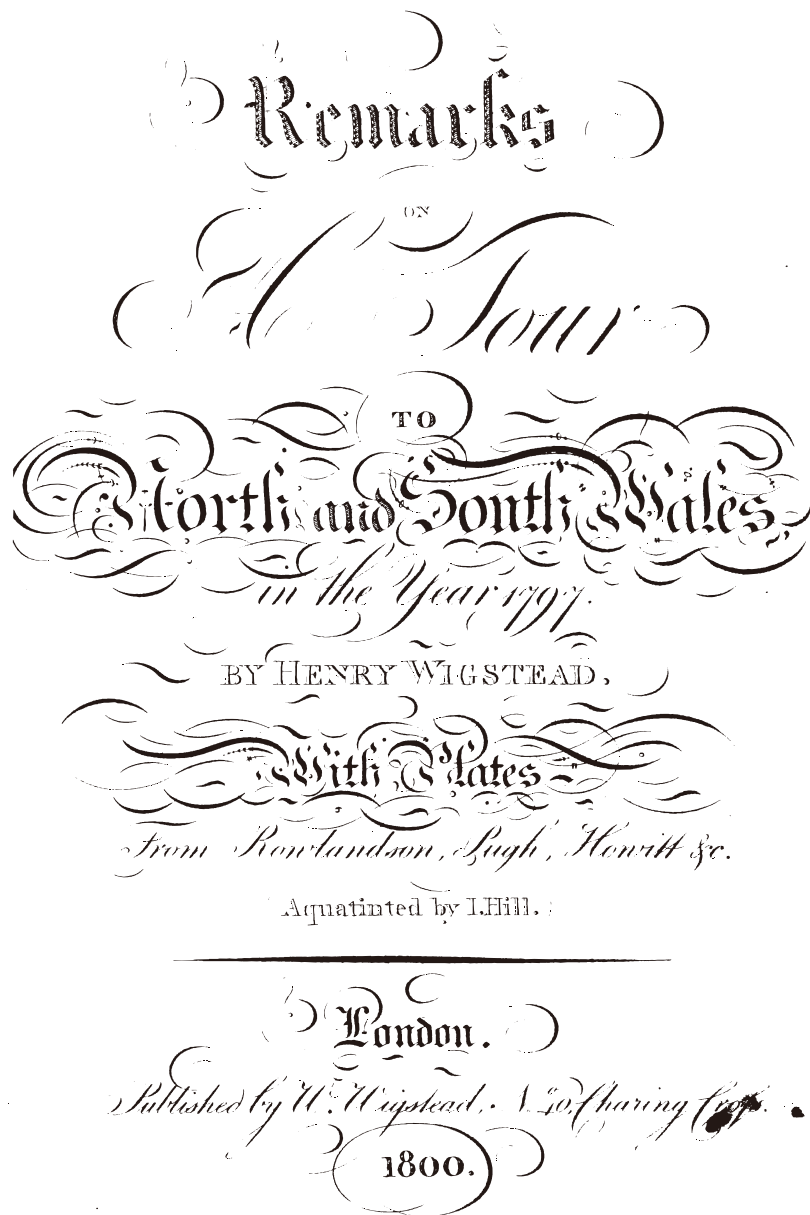 Remarks
ON
A Tour
TO
North and South Wales,
in the Year 1797.
BY HENRY WIGSTEAD,
With Plates
From Rowlandson, Pugh, Howitt &c.
Aquatinted by I. Hill.
London.
Published by W. Wigstead, No. 40, Charing Croſs.
1800.